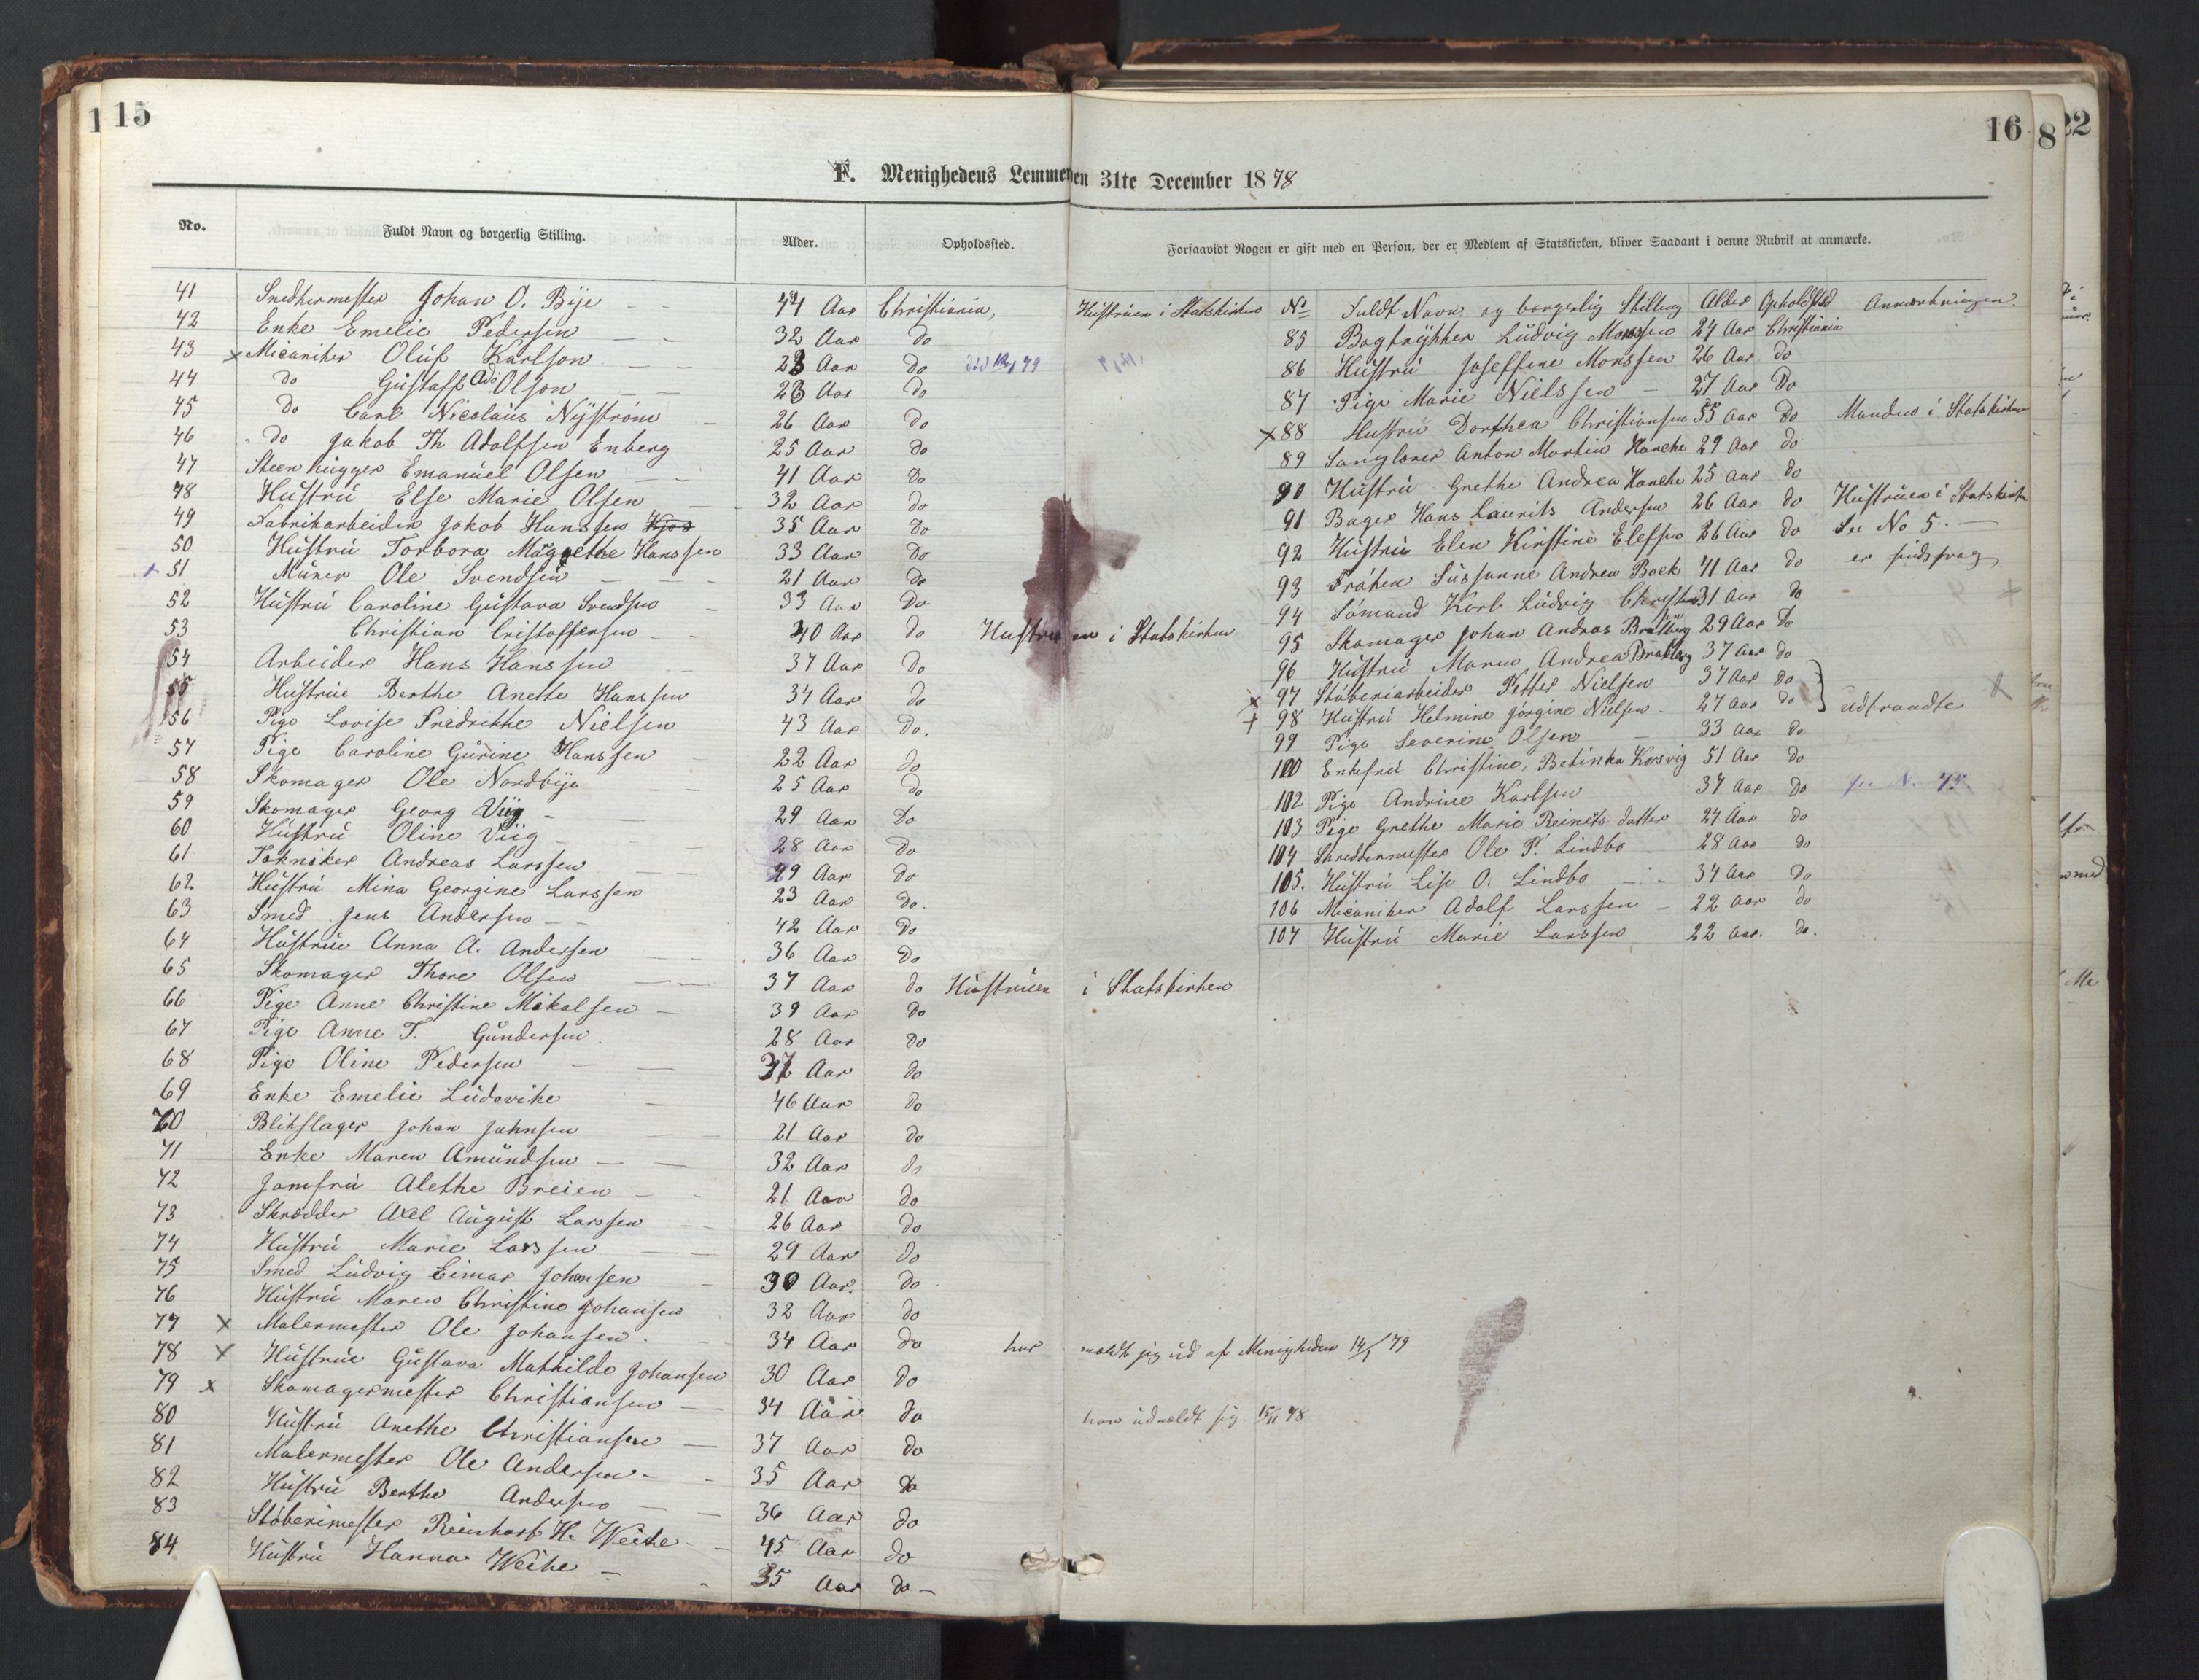 1 15
16 8 22
F. Menighedens Lemmer den 31te December 1878
No. Fuldt Navn og borgerlig Stilling. Alder. Opholdssted. Forsaavidt Nogen er gift med en Person, der er Medlem af Statskirken, bliver Saadant i denne Rubrik at anmærke.
41 Snedkermester Johan O. Bye 44 Aar Christiania, Hustruen i Statskirken
42 Enke Emelie Pedersen 32 Aar do
43 x Micaniker Oluf Karlson 23 Aar do død 79
44 do Gustaff Ado Olson 23 Aar do
45 do Carl Nicolaus Nyström 26 Aar do
46 do Jakob Th Adolfsen Enberg 25 Aar do
47 Steenhugger Emanuel Olsen 41 Aar do
48 Hustru Else Marie Olsen 32 Aar do
49 Fabrikarbeider Jakob Hanssen Kjos 35 Aar do
50 Hustru Torbora Margrethe Hanssen 33 Aar do
x 51 Murer Ole Svendsen 21 Aar do
52 Hustru Caroline Gustava Svendsen 33 Aar do
53 Christian Cristoffersen 40 Aar do Hustruen i Statskirken
54 Arbeider Hans Hanssen 37 Aar do
55 Hustrue Berthe Anette Hanssen 34 Aar do
56 Pige Lovise Fredrikke Nielsen 43 Aar do.
57 Pige Caroline Gurine Hanssen 22 Aar do
58 Skomager Ole Nordbye 25 Aar do
59 Skomager Georg Viig 29 Aar do
60 Hustru Oline Viig 28 Aar do
61 Tekniker Andreas Larssen 29 Aar do
62 Hustru Mina Georgine Larssen 23 Aar do.
63 Smed Jens Andersen 42 Aar do
64 Hustrue Anna A. Andersen 36 Aar do
65 Skomager Thore Olsen 37 Aar do Hustruen i Statskirken
66 Pige Anne Christine Mikalsen 39 Aar do
67 Pige Anne T. Gundersen 28 Aar do
68 Pige Oline Pedersen 32 Aar do
69 Enke Emelie Ludovike 46 Aar do
70 Blikslager Johan Johnsen 21 Aar do
71 Enke Maren Amundsen 32 Aar do
72 Jomfru Alethe Breien 21 Aar do
73 Skrædder Axel August Larssen 26 Aar do
74 Hustru Marie Larssen 29 Aar do
75 Smed Ludvig Eimar Johansen 30 Aar. do
76 Hustru Maren Christine Johansen 32 Aar do
77 x Malermester Ole Johansen 34 Aar do har meldt sig ud af Menigheden 14/1 79
78 x Hustrue Gustava Mathilde Johansen 30 Aar do
79 x Skomagermester Christiansen 34 Aar do har udmeldt sig 15/11 78
80 Hustru Anethe Christiansen 37 Aar do
81 Malermester Ole Andersen 35 Aar do
82 Hustru Berthe Andersen 36 Aar do
83 Støberimester Reinhart H. Weihe 45 Aar do
84 Hustru Hanna Weihe 35 Aar do
No Fuldt Navn og borgerlig Stilling Alder Opholdsted Anmærkninger.
85 Bogtrykker Ludvig Monssen 24 Aar Christiania
86 Hustru Joseffine Monssen 26 Aar do
87 Pige Marie Nielssen 27 Aar do
x 88 Hustru Dorthea Christiansen 55 Aar do Manden i Statskirken
89 Sanglærer Anton Martin Hanche 29 Aar do
90 Hustru Grethe Andrea Hanche 25 Aar do
91 Bager Hans Laurits Andersen 26 Aar do Hustruen i Statskirken
92 Hustru Elen Kirstine Elefsen 26 Aar do See No 5.
93 Frøken Susanne Andrea Boek 41 Aar do er sindssvag
94 Sømand Karl Ludvig 31 Aar do
95 Skomager Johan Andras 29 Aar do
96 Hustru Maren Andrea 37 Aar do
x 97 Støberiarbeider Petter Nielsen 37 Aar do
x 98 Hustru Helmine Jørgine Nielsen 27 Aar do } udtraadte
99 Pige Severine Olsen 33 Aar do
100 Enkefru Christine, Betinka Korsvig 51 Aar do
102 Pige Andrine Karlsen 34 Aar do se N. 45.
103 Pige Grethe Marie Reinitsdatter 24 Aar do
104 Skreddermester Ole P. Lindbo 28 Aar do
105. Hustru Lise O. Lindbo 34 Aar do
106 Micaniker Adolf Larssen 22 Aar do
107 Hustru Marie Larssen 22 Aar. do.